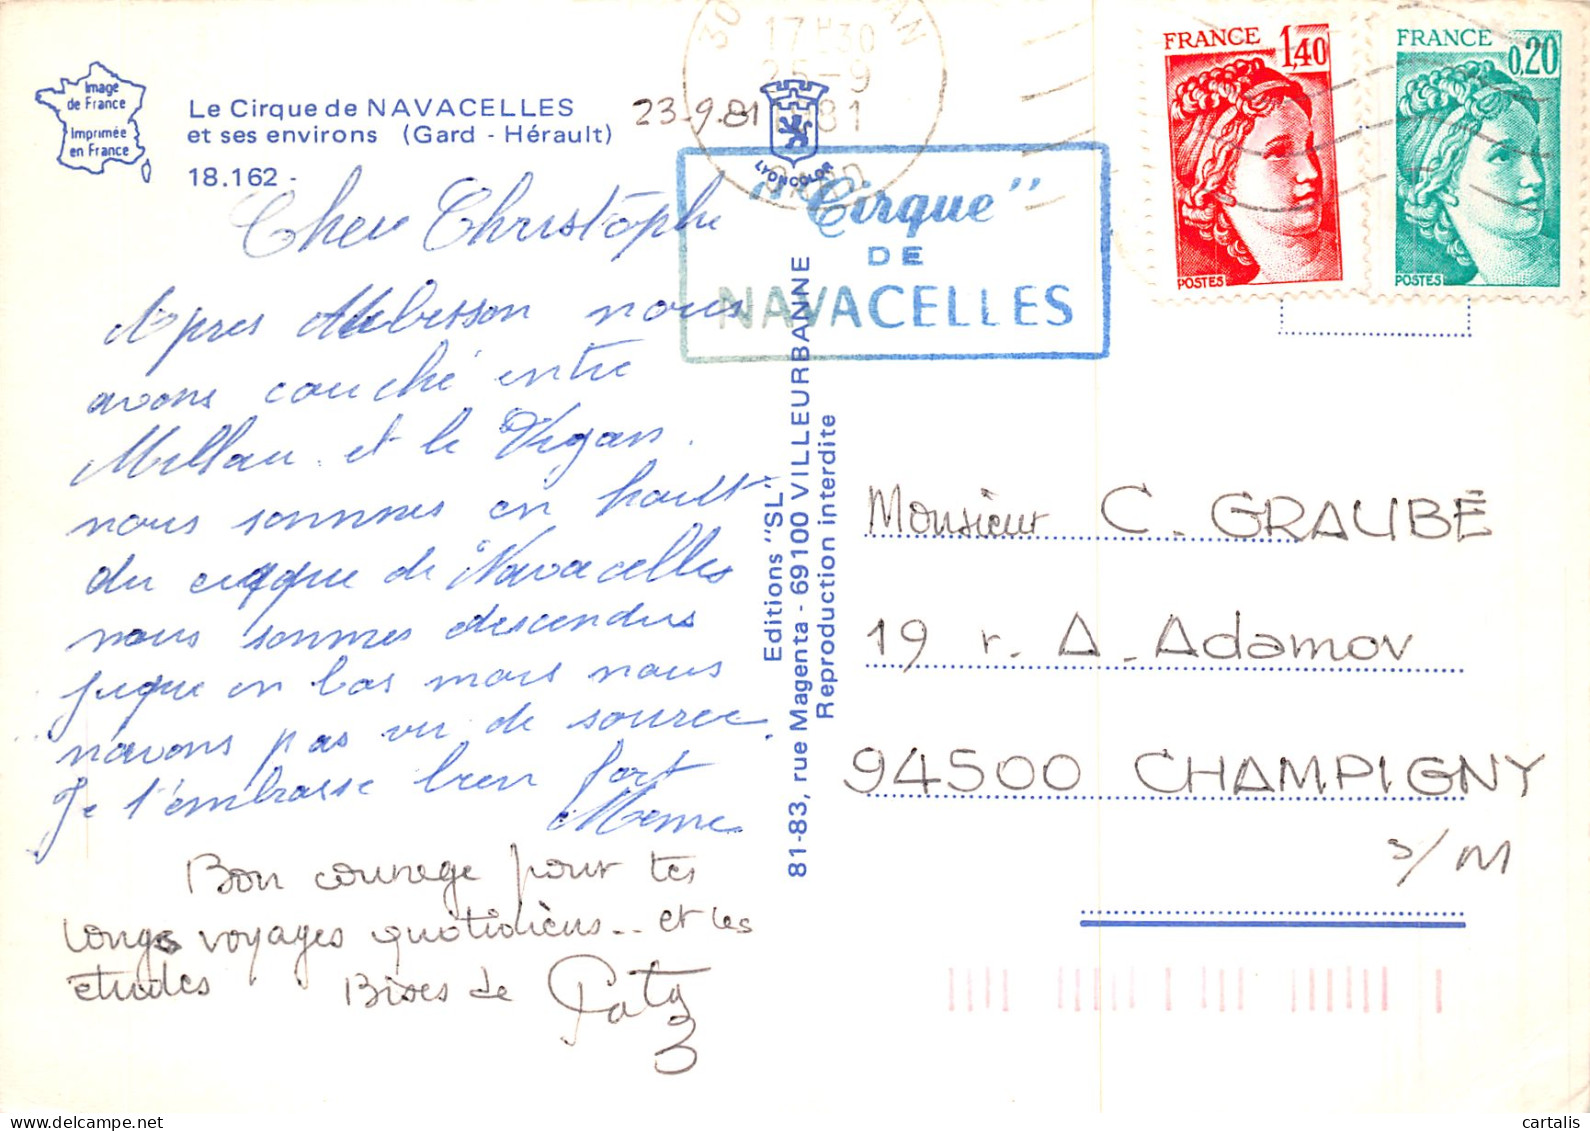 Image
de France
Imprimée
en France
Le Cirque de NAVACELLES
et ses environs (Gard - Hérault)
18.162 -
23-9-81
17H30
25-9
1981
GARD
LYONCOLOR
"Cirque"
DE
NAVACELLES
FRANCE 1,40
POSTES
FRANCE 0,20
POSTES
Cher Christophe
Apres Aubusson nous
avons couché entre
Millau et le Vigan.
nous sommes en haut
du cirque de Navacelles
nous sommes descendus
juque en bas mais nous
navons pas vu de source.
Je t'embrasse bien fort
Meme
Bon courage pour tes
longs voyages quotidiens... et les
études Bises de
Editions "SL"
81-83, rue Magenta - 69100 VILLEURBANNE
Reproduction interdite
Monsieur C. GRAUBE
19 r. A. Adamov
94500 CHAMPIGNY
s/M
cartalis.com